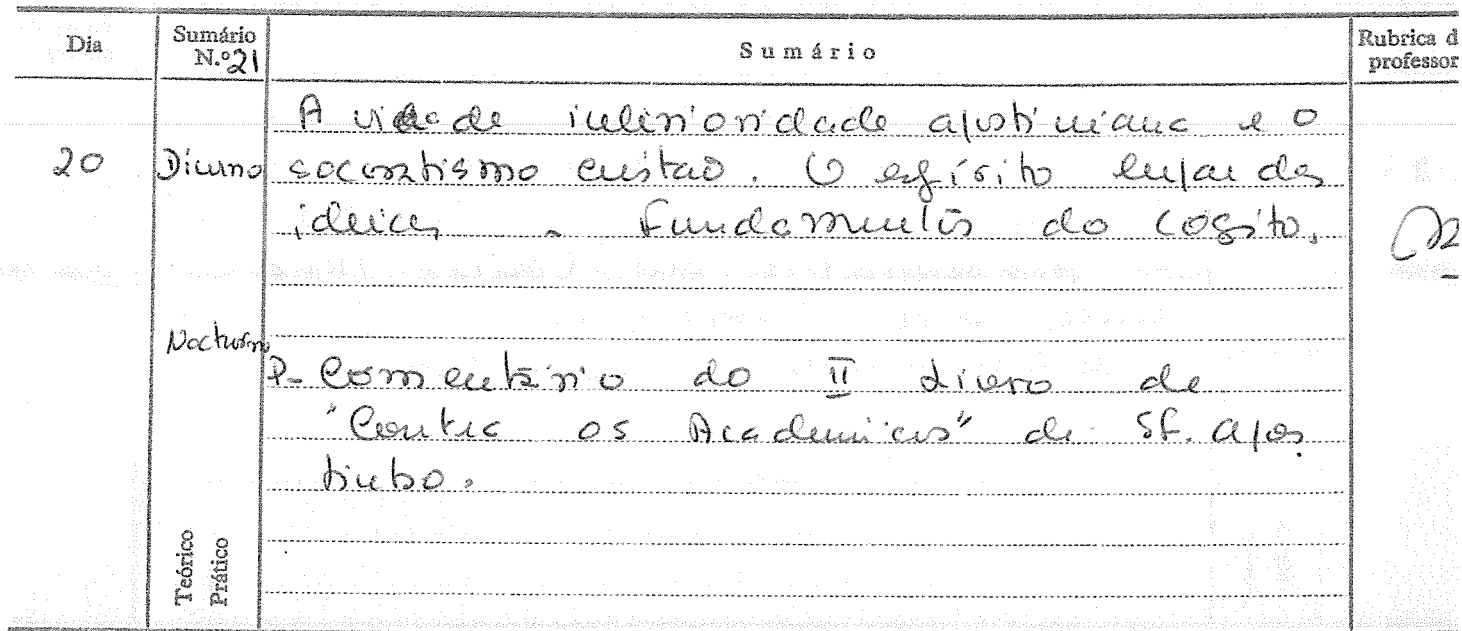 Dia
Sumário N.º 21
Sumário
Rubrica d
professor
A via de interioridade agostiniana e o
20 Diurno socratismo cristão. O espírito lugar das
ideias - Fundamentos do cogito.
Nocturno
P- Comentário do II Livro de
"Contra os Academicos" de St. Agos
tinho.
Teórico
Prático